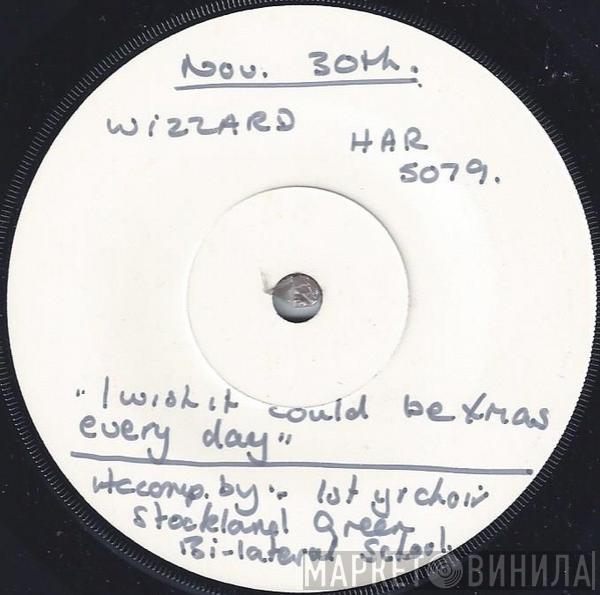 Nov. 30th.
WIZZARD
HAR
5079.
"I wish it could be Xmas
every day"
Accomp. by:- 1st yr choir
Stockland Green
Bi-lateral School
МАРКЕТ ВИНИЛА